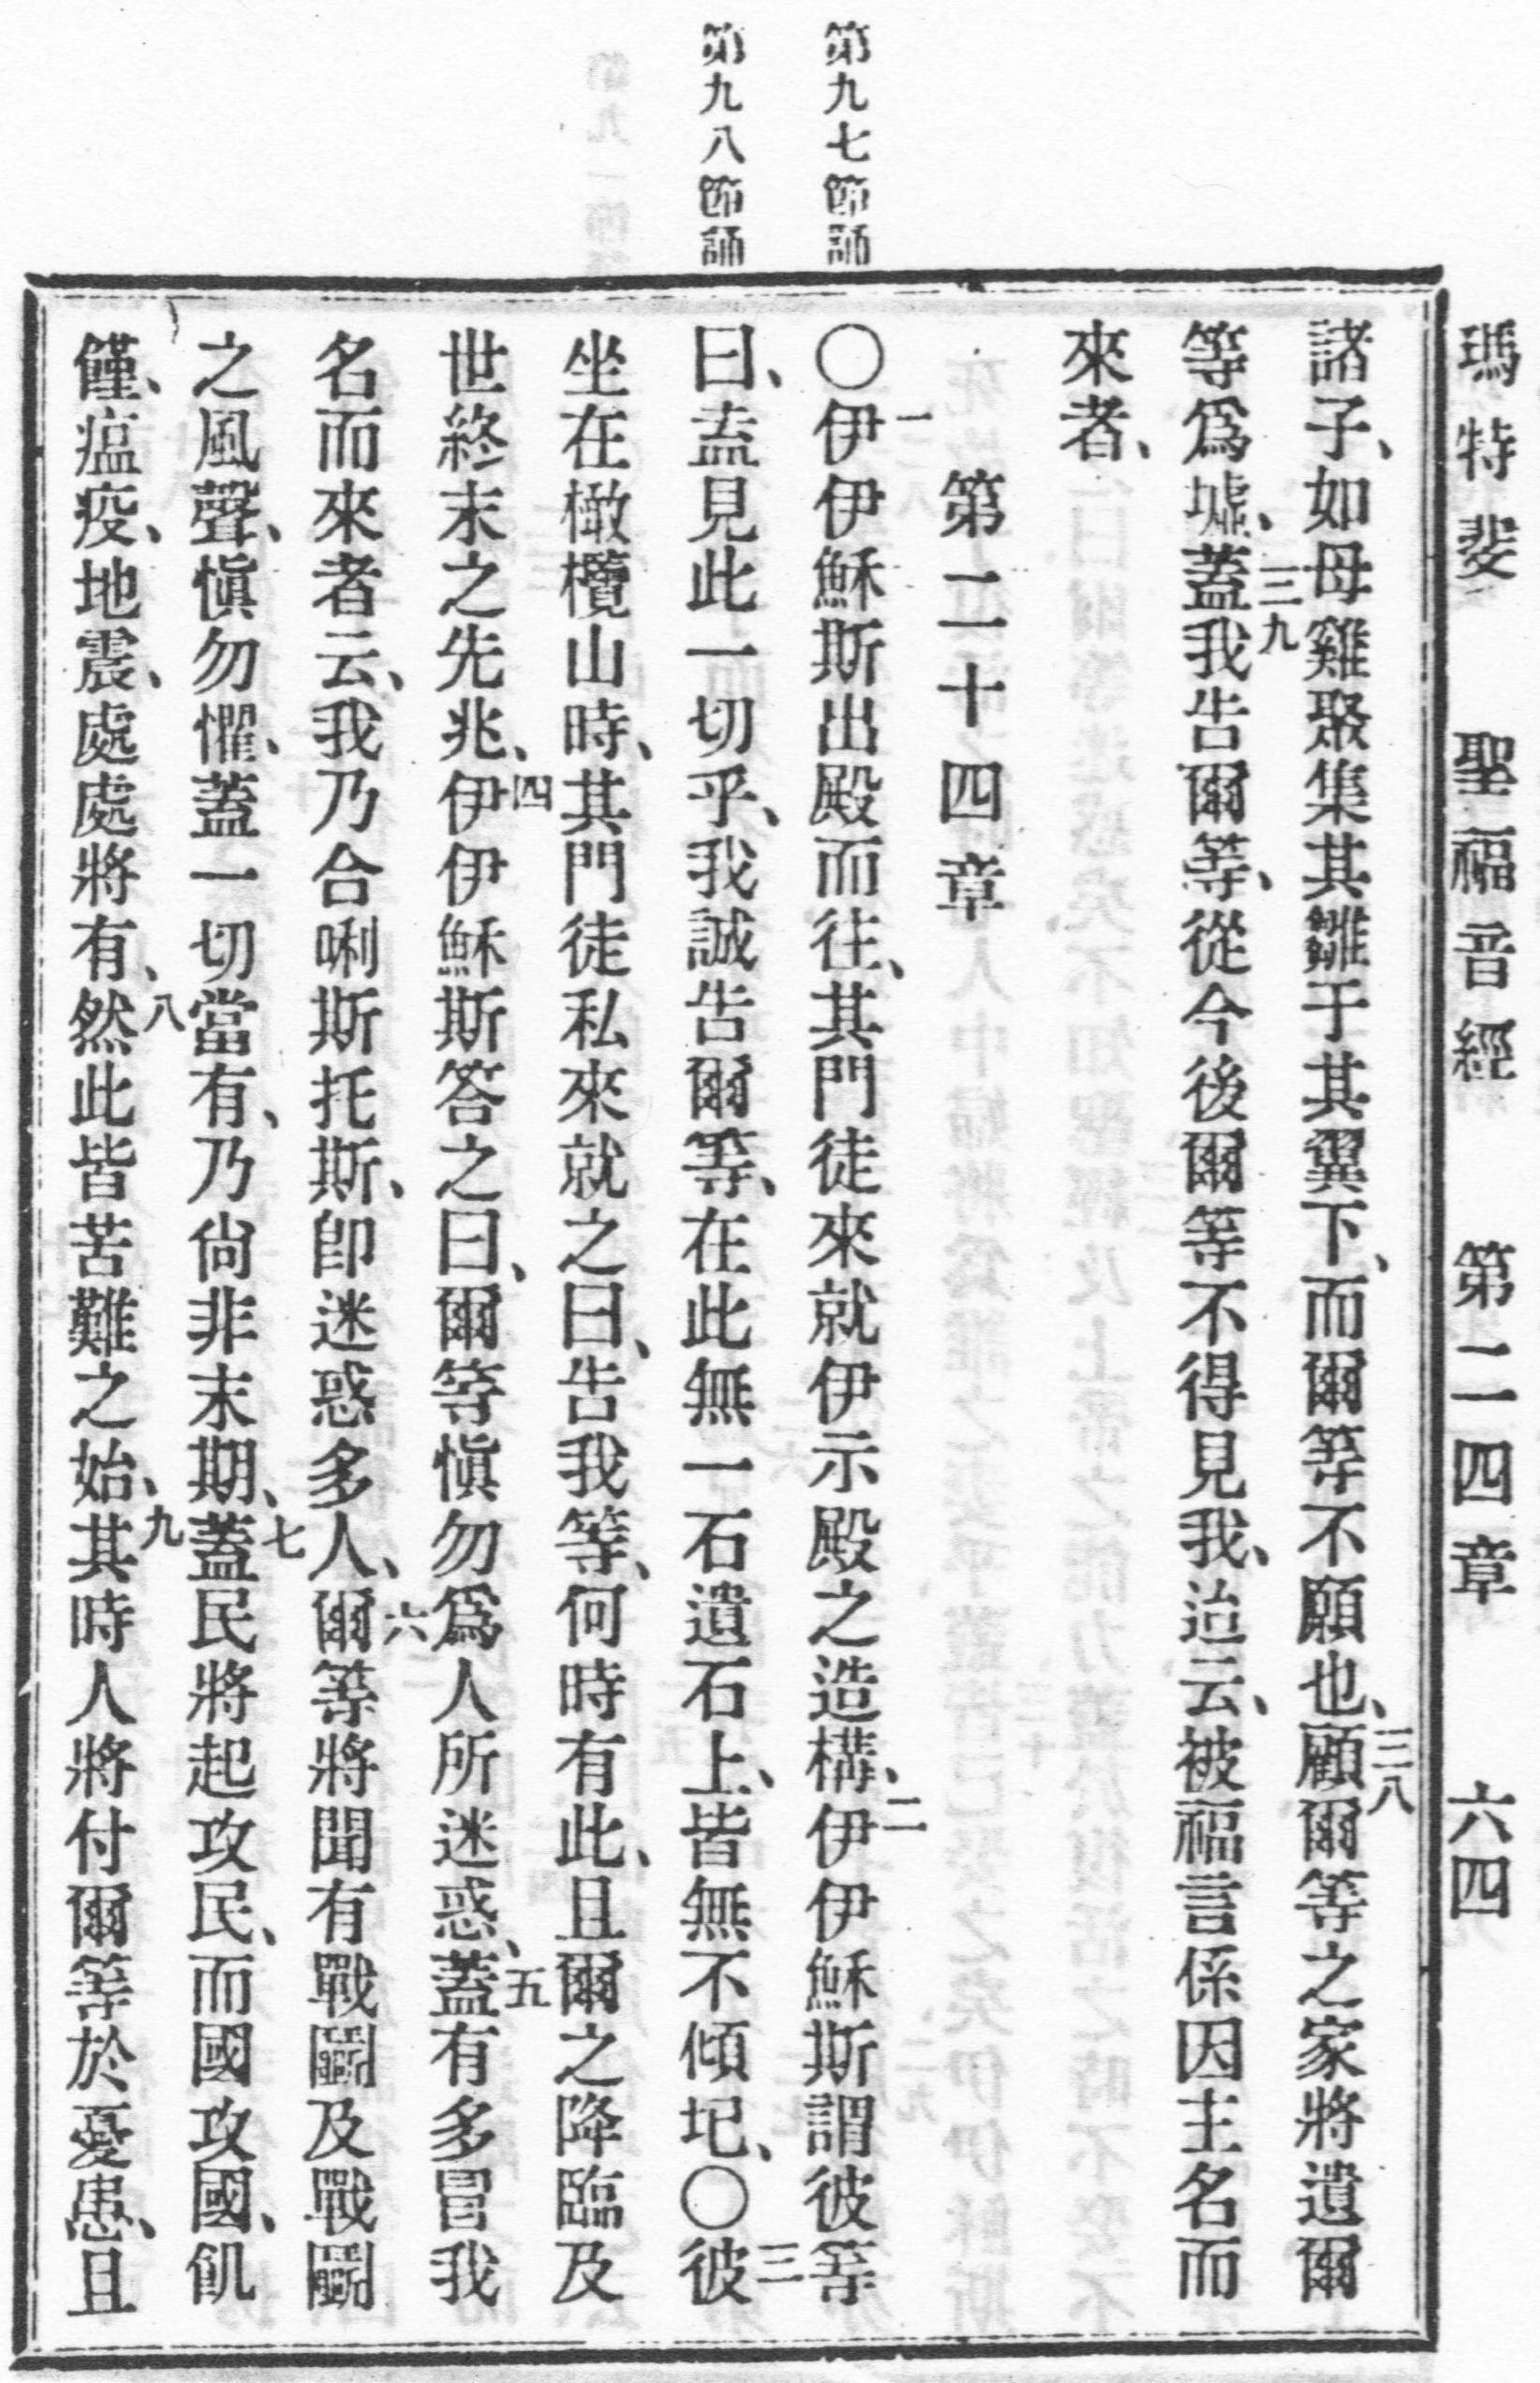 瑪特斐 聖福音經 第二四章 六四
第九七節誦
第九八節誦
諸子、如母雞聚集其雛于其翼下、而爾等不願也、三八顧爾等之家將遺爾
等爲墟、三九蓋我告爾等、從今後爾等不得見我、迨云、被福言係因主名而
來者、
第二十四章
〇一伊伊穌斯出殿而往、其門徒來就伊示殿之造構、二伊伊穌斯謂彼等
曰、盍見此一切乎、我誠告爾等、在此無一石遺石上、皆無不傾圮、〇三彼
坐在橄欖山時、其門徒私來就之曰、告我等、何時有此、且爾之降臨及
世終末之先兆、四伊伊穌斯答之曰、爾等愼勿爲人所迷惑、五蓋有多冒我
名而來者云、我乃合唎斯托斯、卽迷惑多人、六爾等將聞有戰鬭及戰鬭
之風聲、愼勿懼、蓋一切當有、乃尙非末期、七蓋民將起攻民、而國攻國、飢
饉、瘟疫、地震、處處將有、八然此皆苦難之始、九其時人將付爾等於憂患、且